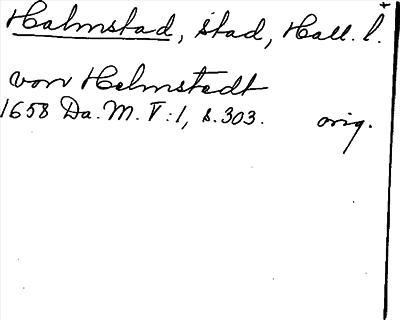 Halmstad, stad, Hall. l.
von Helmstedt
1658 Da. M. V:1, s. 303. orig.